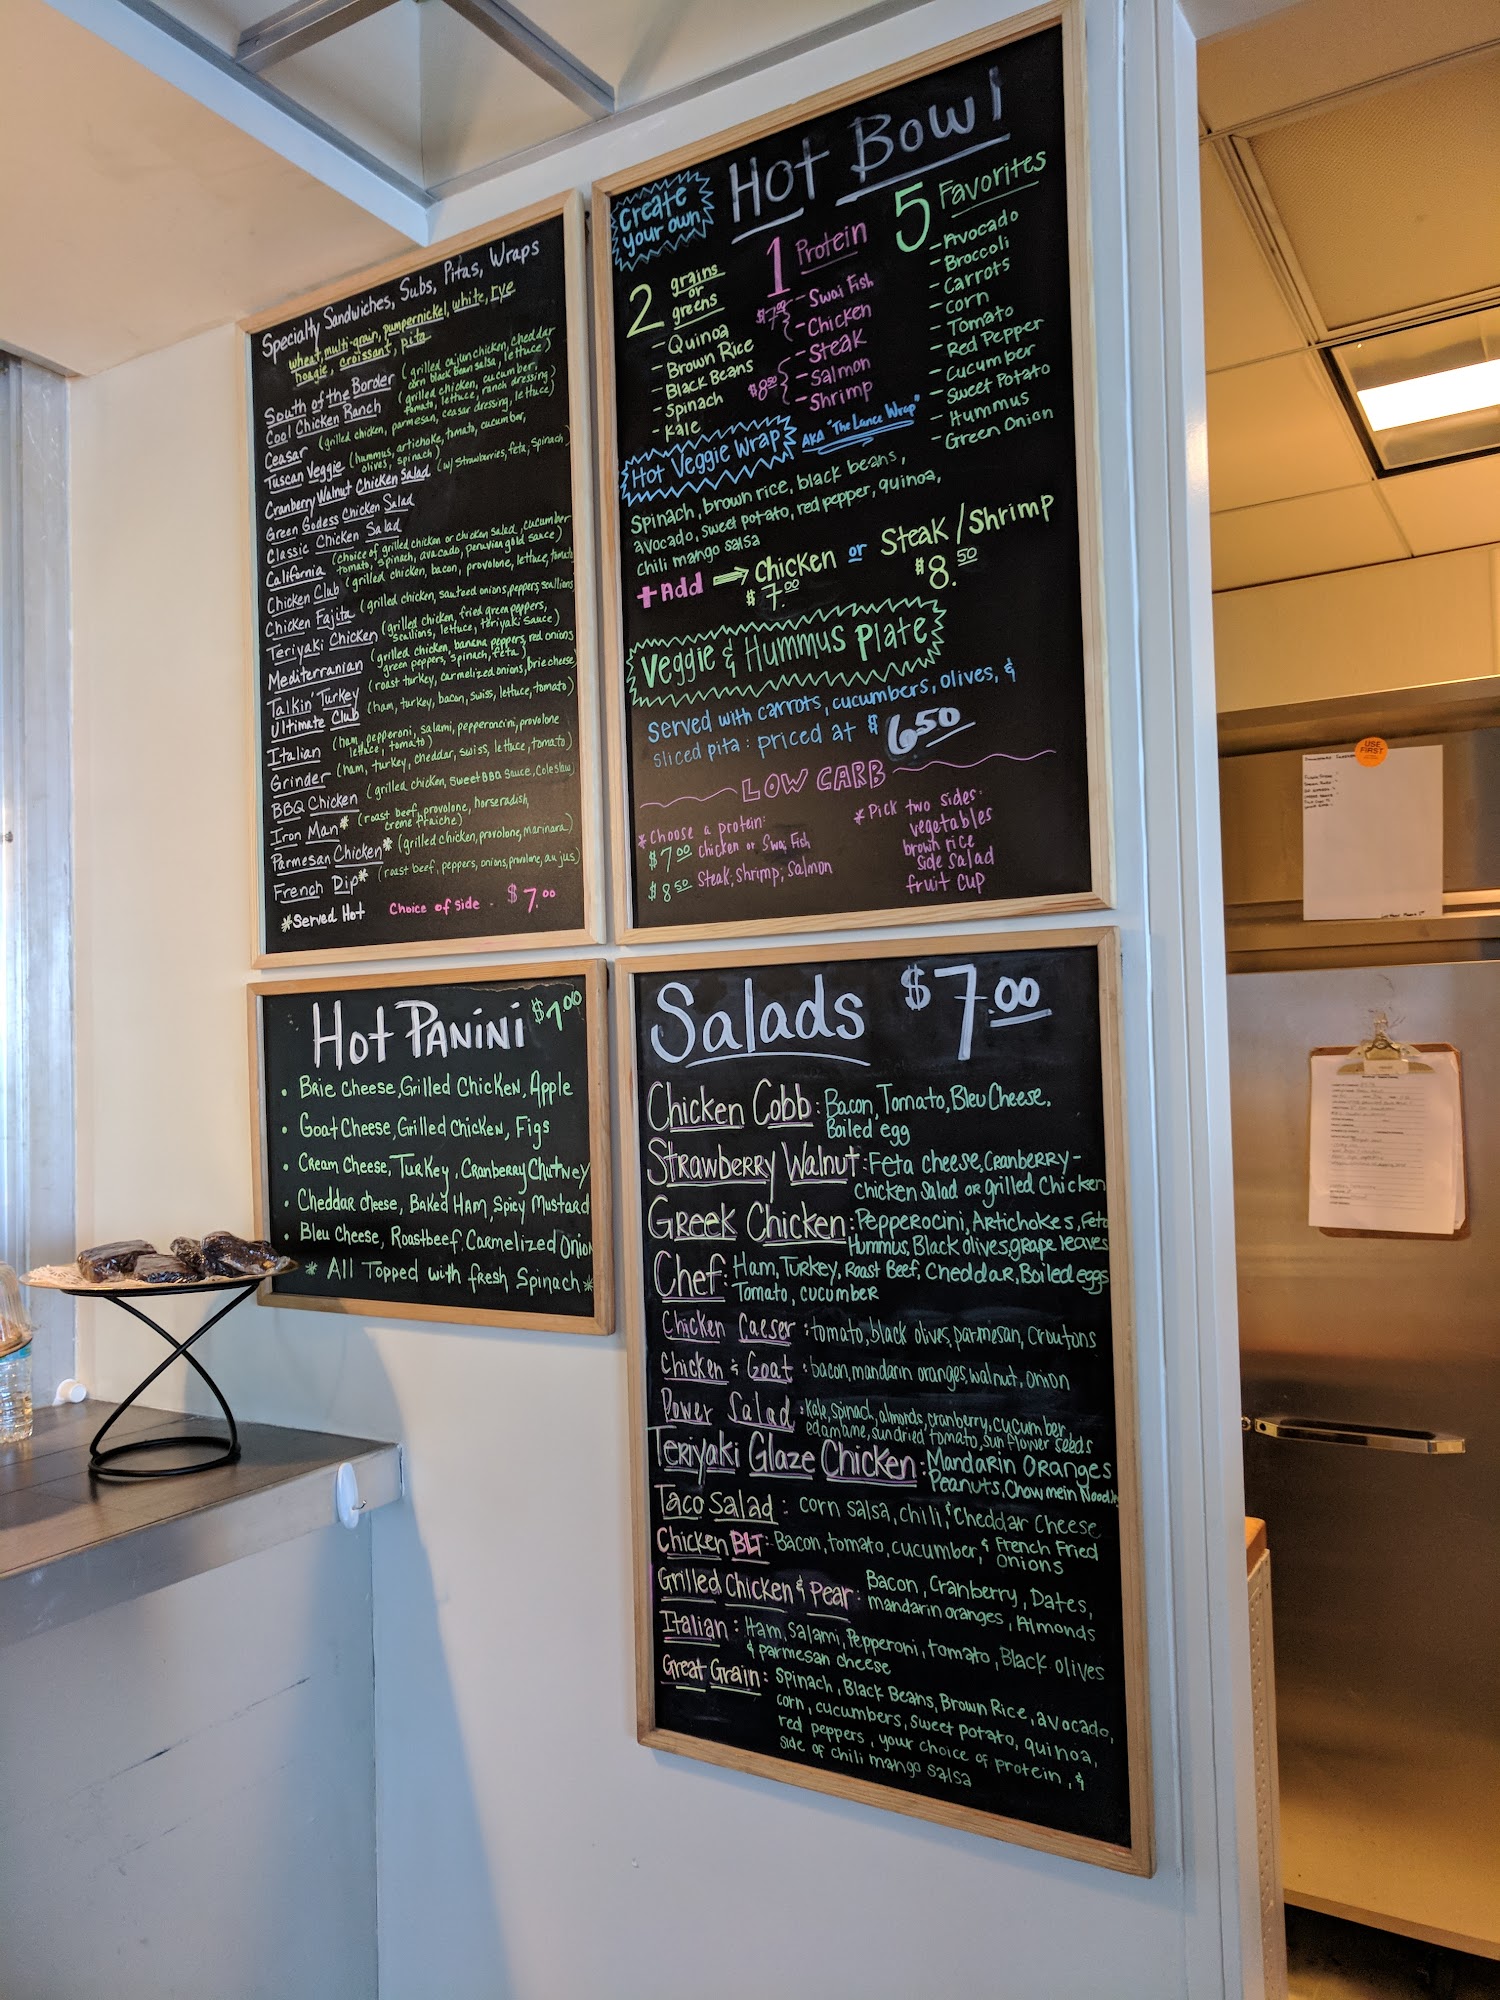 Specialty Sandwiches, Subs, Pitas, Wraps
wheat, multi-grain, pumpernickel, white, rye
hoagie, croissant, pita
South of the Border (grilled cajun chicken, cheddar
corn black bean salsa, lettuce)
Cool Chicken Ranch (grilled chicken, cucumber
tomato, lettuce, ranch dressing)
Ceasar (grilled chicken, parmesan, ceasar dressing, lettuce)
Tuscan Veggie (hummus, artichoke, tomato, cucumber,
olives, spinach)
Cranberry Walnut Chicken Salad (w/ strawberries, feta, spinach)
Green Godess Chicken Salad
Classic Chicken Salad
California (choice of grilled chicken or chicken salad, cucumber
tomato, spinach, avacado, peruvian gold sauce)
Chicken Club (grilled chicken, bacon, provolone, lettuce, tomato
Chicken Fajita (grilled chicken, sauteed onions, peppers, scallions
Teriyaki Chicken (grilled chicken, fried green peppers,
scallions, lettuce, teriyaki sauce)
Mediterranean (grilled chicken, banana peppers, red onions
green peppers, spinach, feta)
Talkin' Turkey (roast turkey, carmelized onions, brie cheese)
Ultimate Club (ham, turkey, bacon, swiss, lettuce, tomato)
Italian (ham, pepperoni, salami, pepperoncini, provolone
lettuce, tomato)
Grinder (ham, turkey, cheddar, swiss, lettuce, tomato)
BBQ Chicken (grilled chicken, sweet BBQ sauce, Coleslaw
Iron Man* (roast beef, provolone, horseradish,
creme fraiche)
Parmesan Chicken* (grilled chicken, provolone, marinara)
French Dip* (roast beef, peppers, onions, provolone, au jus)
*Served Hot Choice of side - $7.00
Hot Bowl
Create
your own
2 grains
or
greens
- Quinoa
- Brown Rice
- Black Beans
- Spinach
- Kale
1 Protein
$7.00
- Swai Fish
- Chicken
$8.50
- Steak
- Salmon
- Shrimp
5 Favorites
- Avocado
- Broccoli
- Carrots
- Corn
- Tomato
- Red Pepper
- Cucumber
- Sweet Potato
- Hummus
- Green Onion
Hot Veggie Wrap AKA "The Lance Wrap"
Spinach, brown rice, black beans,
avocado, sweet potato, red pepper, quinoa,
chili mango salsa
+Add ⟹ Chicken or Steak/Shrimp
$7.00 $8.50
Veggie & Hummus Plate
Served with carrots, cucumbers, olives, &
sliced pita: priced at $6.50
LOW CARB
*Choose a protein:
$7.00 chicken or Swai Fish
$8.50 Steak, Shrimp, Salmon
*Pick two sides:
vegetables
brown rice
side salad
fruit cup
Hot Panini $7.00
• Brie Cheese, Grilled Chicken, Apple
• Goat Cheese, Grilled Chicken, Figs
• Cream Cheese, Turkey, Cranberry Chutney
• Cheddar cheese, Baked Ham, Spicy Mustard
• Bleu Cheese, Roastbeef, Carmelized Onion
* All Topped with fresh Spinach*
Salads $7.00
Chicken Cobb: Bacon, Tomato, Bleu Cheese,
Boiled egg
Strawberry Walnut: Feta cheese, Cranberry-
chicken salad or grilled chicken
Greek Chicken: Pepperocini, Artichokes, Feta
Hummus, Black olives, grape leaves
Chef: Ham, Turkey, Roast Beef, Cheddar, Boiled eggs
Tomato, cucumber
Chicken Caeser: tomato, black olives, parmesan, croutons
Chicken & Goat: bacon, mandarin oranges, walnut, onion
Power Salad: Kale, spinach, almonds, cranberry, cucumber,
edamame, sundried tomato, sunflower seeds
Teriyaki Glaze Chicken: Mandarin Oranges
Peanuts, Chow mein Noodles
Taco Salad: corn salsa, chili, & cheddar cheese
Chicken BLT: Bacon, tomato, cucumber, & French Fried
onions
Grilled Chicken & Pear: Bacon, Cranberry, Dates,
mandarin oranges, Almonds
Italian: Ham, Salami, Pepperoni, tomato, Black olives
& parmesan cheese
Great Grain: Spinach, Black Beans, Brown Rice, avocado,
corn, cucumbers, sweet potato, quinoa,
red peppers, your choice of protein, &
side of chili mango salsa
USE
FIRST